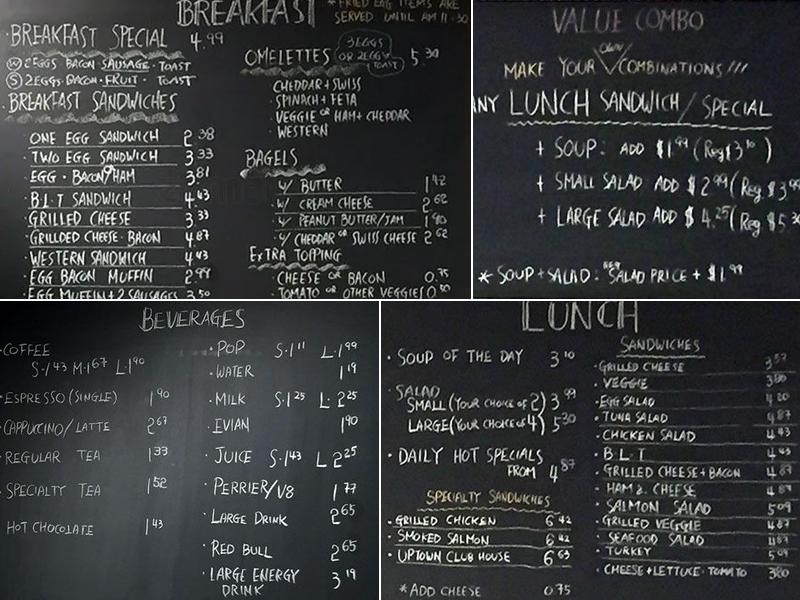 BREAKFAST
*FRIED EGG ITEMS ARE
SERVED UNTIL AM 11:30
·BREAKFAST SPECIAL 4.99
(W) 2 EGGS BACON SAUSAGE · TOAST
(S) 2 EGGS · BACON · FRUIT · TOAST
·BREAKFAST SANDWICHES
ONE EGG SANDWICH 2 38
TWO EGG SANDWICH 3 33
EGG · BACON OR HAM 3 81
B.L.T SANDWICH 4.43
GRILLED CHEESE 3 33
GRILLDED CHEESE · BACON 4.87
WESTERN SANDWICH 4.43
EGG BACON MUFFIN 2.99
EGG MUFFIN + 2 SAUSAGES 3 50
OMELETTES 3 EGGS 5.30
OR 2 EGG
TOAST
CHEDDAR + SWISS
· SPINACH + FETA
· VEGGIE OR HAM + CHEDDAR
· WESTERN
BAGELS
W/ BUTTER 1 42
W/ CREAM CHEESE 2 62
W/ PEANUT BUTTER/JAM 1 90
W/ CHEDDAR OR SWISS CHEESE 2 62
EXTRA TOPPING
CHEESE OR BACON 0.75
TOMATO OR OTHER VEGGIES 0 50
VALUE COMBO
MAKE YOUR OWN COMBINATIONS!!!
ANY LUNCH SANDWICH / SPECIAL
+ SOUP: ADD $1.99 (Reg $3 10)
+ SMALL SALAD ADD $2.99 (Reg $3 99
+ LARGE SALAD ADD $4.25 (Reg $5 30
* SOUP + SALAD: REG SALAD PRICE + $1.99
BEVERAGES
·COFFEE
S·1.43 M·1.67 L·1.90
·ESPRESSO (SINGLE) 1 90
·CAPPUCCINO/LATTE 2 67
·REGULAR TEA 1 33
·SPECIALTY TEA 1 52
·HOT CHOCOLATE 1 43
·POP S·1 11 L·1 99
·WATER 1 19
·MILK S·1 25 L·2 25
·EVIAN 1 90
·JUICE S·1.43 L 2 25
·PERRIER/V8 1 77
·LARGE DRINK 2 65
·RED BULL 2 65
·LARGE ENERGY
DRINK 3 19
LUNCH
·SOUP OF THE DAY 3 10
·SALAD
SMALL (YOUR CHOICE OF 2) 3 99
LARGE (YOUR CHOICE OF 4) 5 30
·DAILY HOT SPECIALS
FROM 4 87
SPECIALTY SANDWICHES
·GRILLED CHICKEN 6 42
·SMOKED SALMON 6 42
·UPTOWN CLUB HOUSE 6 63
*ADD CHEESE 0 75
SANDWICHES
·GRILLED CHEESE
·VEGGIE 3 80
·EGG SALAD
·TUNA SALAD 4 87
·CHICKEN SALAD 4 43
·B.L.T 4 43
·GRILLED CHEESE + BACON 4 87
·HAM & CHEESE 4 87
·SALMON SALAD 5 09
·GRILLED VEGGIE 4 87
·SEAFOOD SALAD 4 87
·TURKEY 5 09
·CHEESE + LETTUCE · TOMATO 3 80